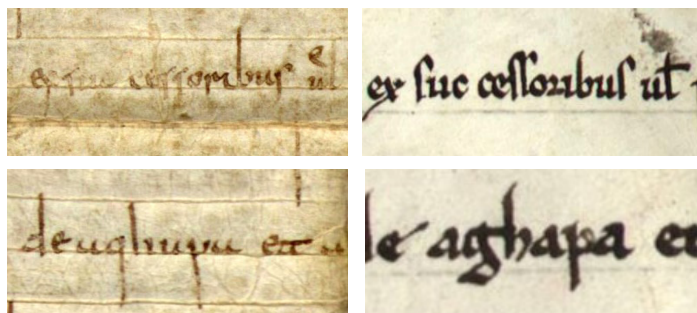 ex suc cessoribus ul
ex suc cessoribus ul
de aghapa et
le aghapa et